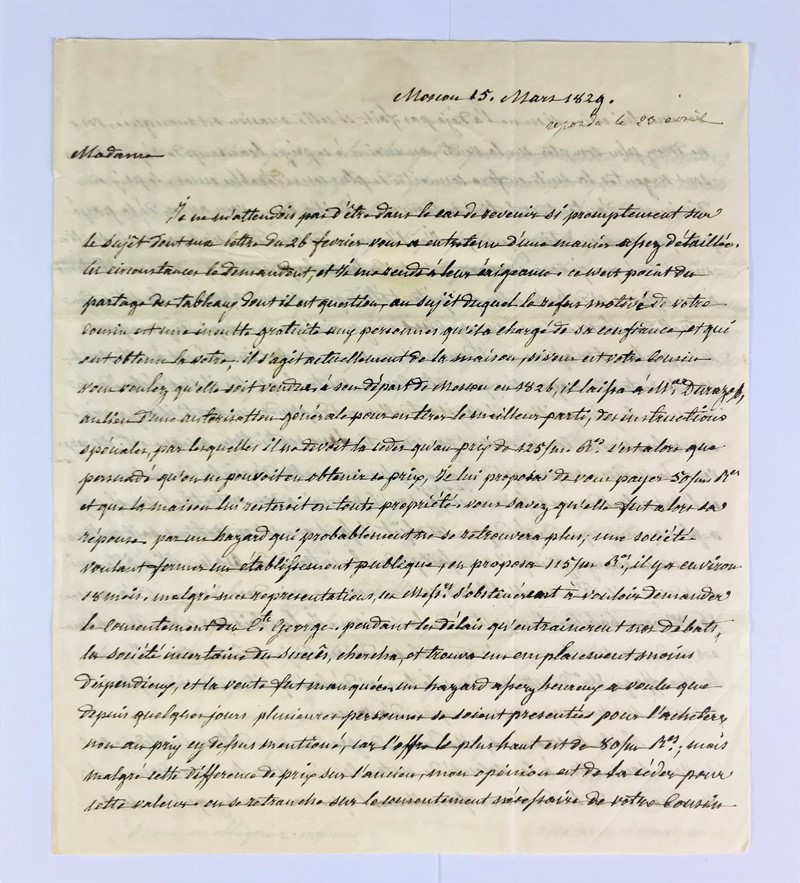 Moscou 15. Mars 1829.
repondu le 23 avril
Madame
Je ne m'attendois pas d'être dans le cas de revenir si promptement sur
le sujèt dont ma lettre du 26 fevrier vous a entretenu d'une maniere assez détaillée.
les circonstances le demandent, et je me rends à leur éxigeance. ce n'est point du
partage des tableaux dont il est question, au sujèt duquel le refus motivé de votre
Cousin est une insulte gratuite aux personnes qu'il a chargé de sa confiance, et qui
ont obtenu la votre; il s'agit actuellement de la maison, si vous et votre Cousin
vous voulez qu'elle soit vendue. à son départ de Moscou en 1826, il laissa à Mrs
au lieu d'une autorisation générale pour en tirer le meilleur parti, des instructions
spéciales, par lesquelles il ne devoit la ceder qu'au prix de 125/m Rs. c'est alors que
persuadé qu'on ne pouvoit en obtenir ce prix, Je lui proposai de vous payer 50/m Rs
et que la maison lui resteroit en toute propriété. vous savez qu'elle fut alors sa
réponse. par un hazard qui probablement ne se retrouvera plus, une société
voulant former un établissement publique, en proposa 115/m Rs, il y a environ
18 mois. malgré mes representations, ces Messrs s'obstinérent à vouloir demander
le consentement du Cte George. pendant les délais qu'entrainerent nos débats,
la société incertaine du succès, chercha, et trouva un emplacement moins
dispendieux, et la vente fut manquée. un hazard assez heureux a voulu que
depuis quelques jours plusieures personnes se soient presentées pour l'acheter,
non au prix cy dessus mentioné, car l'offre le plus haut est de 80/m Rs; mais
malgré cette difference de prix sur l'ancien, mon opinion est de la céder pour
cette valeur. on se retranche sur le consentement nécessaire de votre Cousin